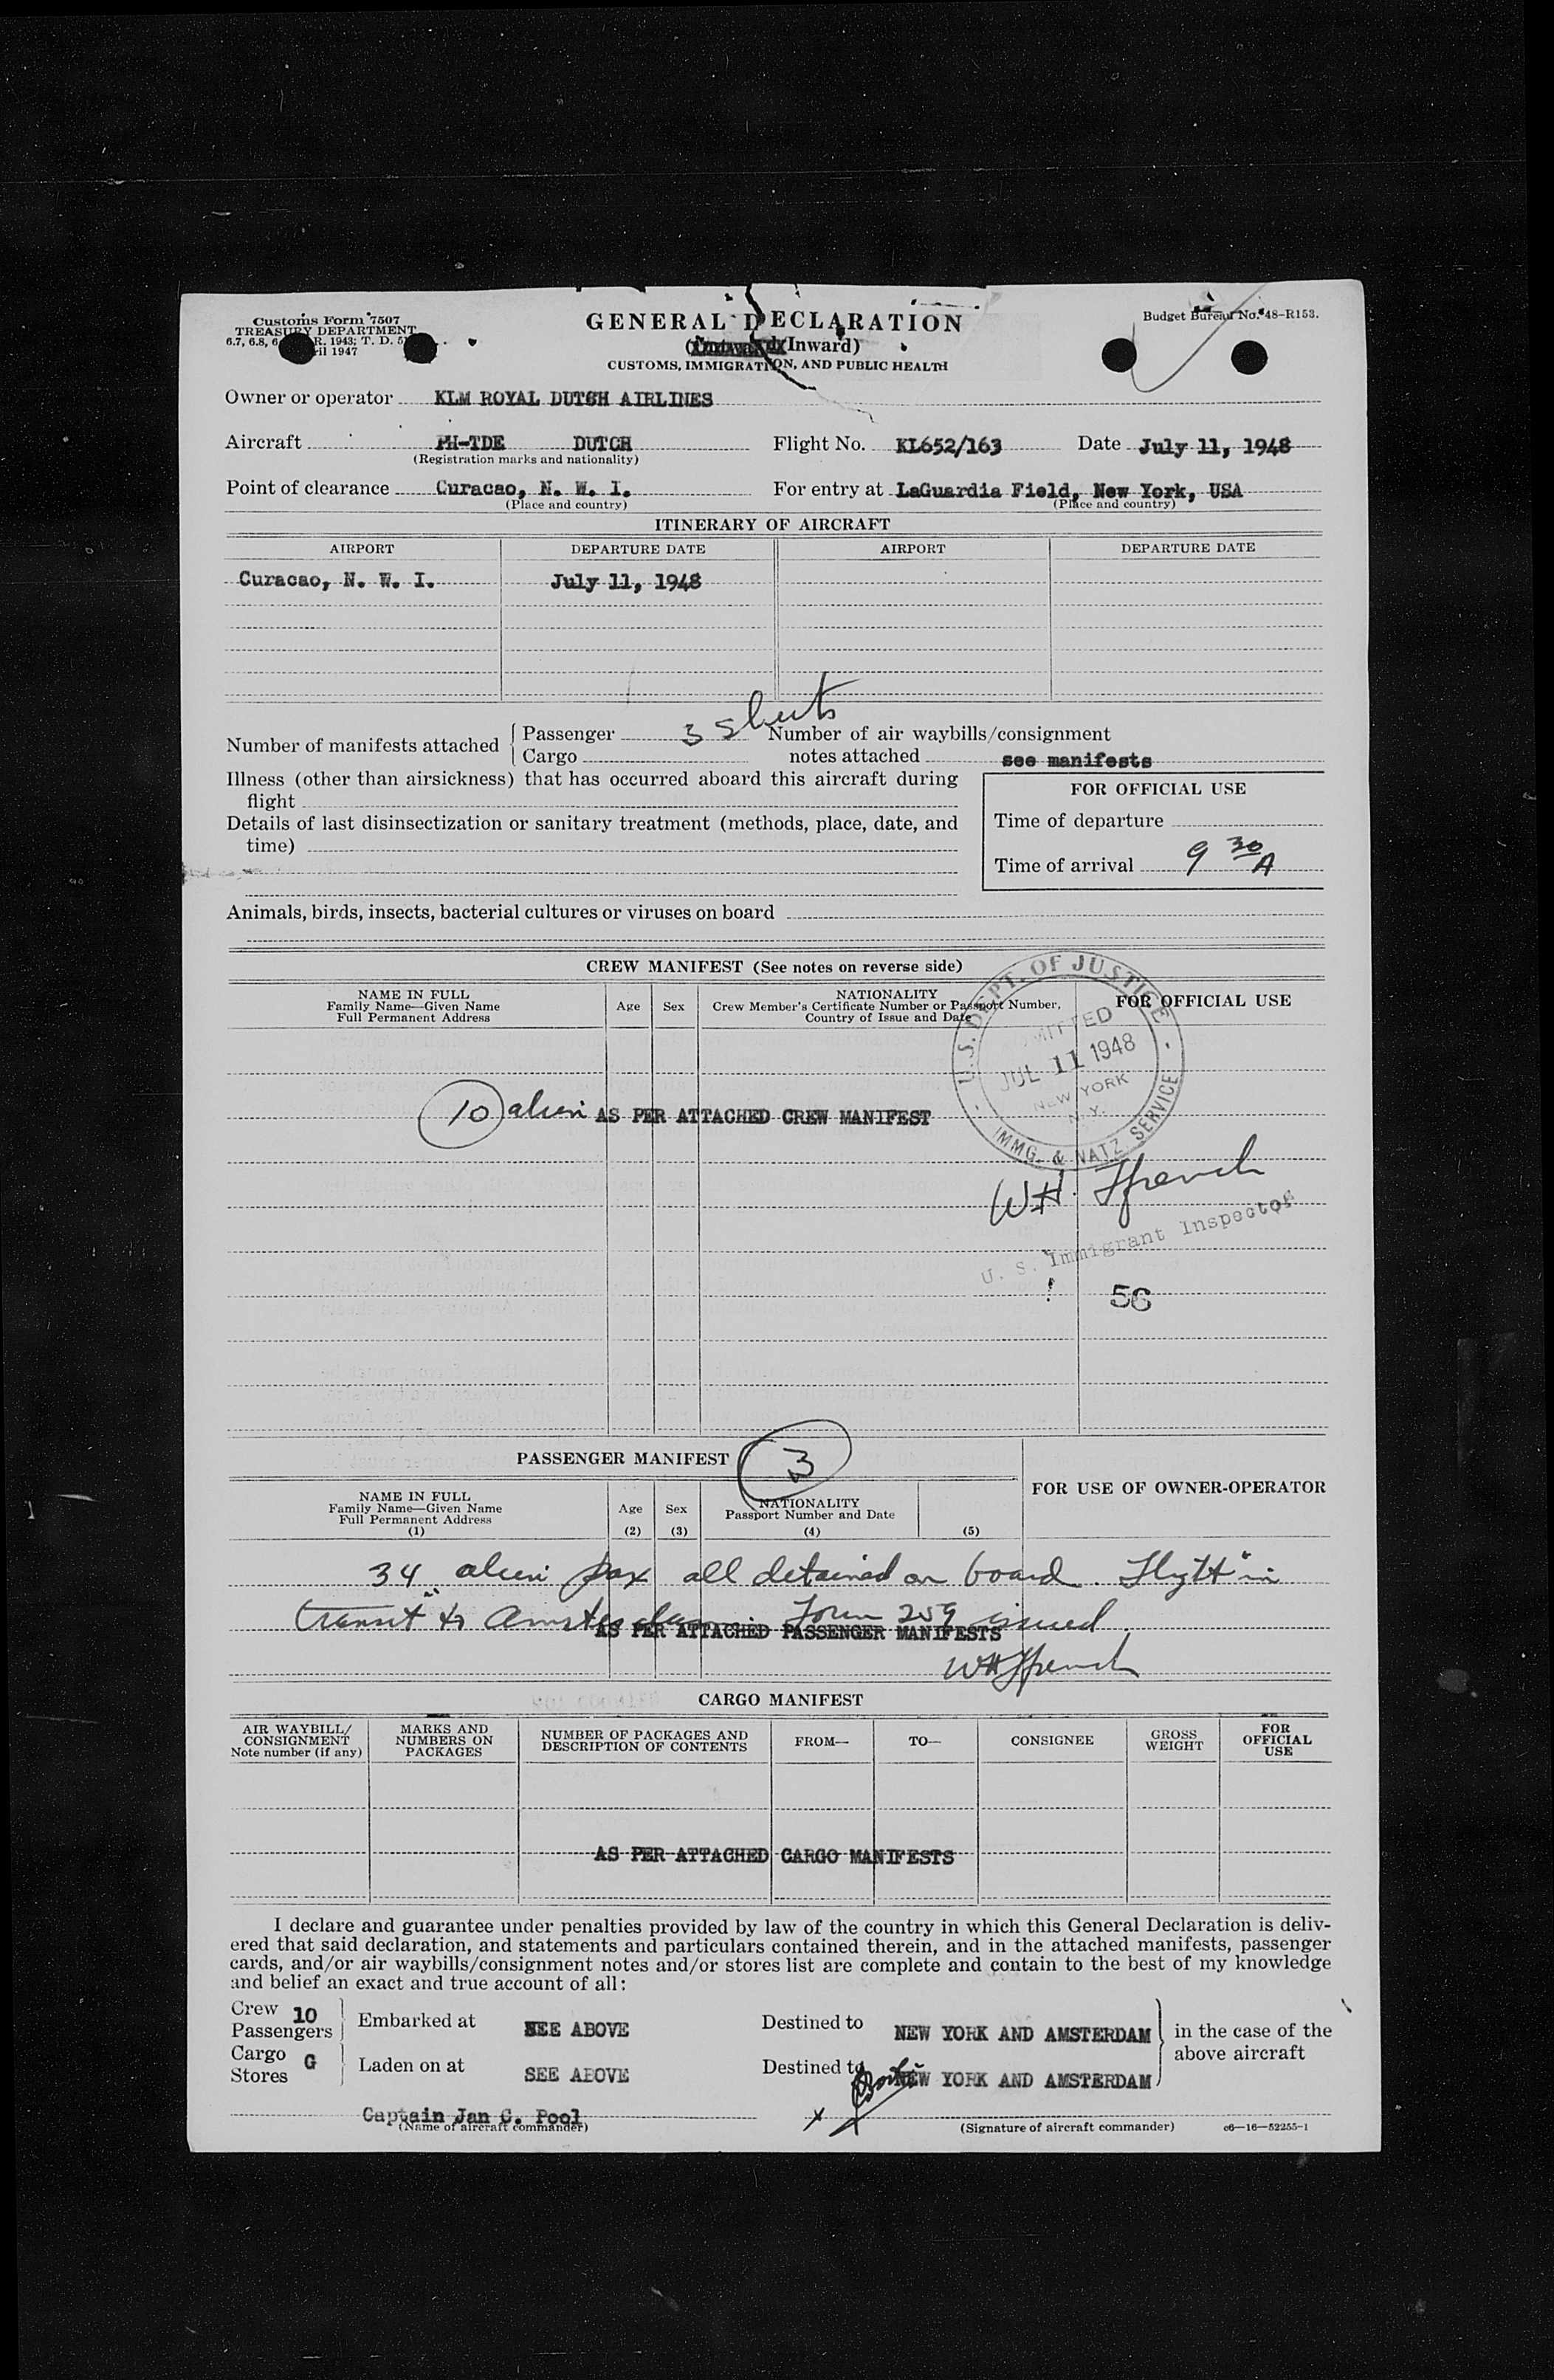 Customs Form 7507
TREASURY DEPARTMENT
6.7, 6.8, 6. R. 1943; T. D.
1947
GENERAL DECLARATION
Inward)
CUSTOMS, IMMIGRATION, AND PUBLIC HEALTH
Budget Bureau No. 48-R153.
Owner or operator KLM ROYAL DUTCH AIRLINES
Aircraft PH-TDE DUTCH Flight No. KL652/163 Date July 11, 1948
(Registration marks and nationality)
Point of clearance Curacao, N. W. I. For entry at LaGuardia Field, New York, USA
(Place and country) (Place and country)
ITINERARY OF AIRCRAFT
AIRPORT DEPARTURE DATE AIRPORT DEPARTURE DATE
Curacao, N. W. I. July 11, 1948
Number of manifests attached { Passenger 3 sheets Number of air waybills/consignment
{ Cargo notes attached see manifests
Illness (other than airsickness) that has occurred aboard this aircraft during
flight
Details of last disinsectization or sanitary treatment (methods, place, date, and
time)
FOR OFFICIAL USE
Time of departure
Time of arrival 9 30 A
Animals, birds, insects, bacterial cultures or viruses on board
CREW MANIFEST (See notes on reverse side)
NAME IN FULL
Family Name—Given Name
Full Permanent Address
Age
Sex
NATIONALITY
Crew Member's Certificate Number or Passport Number,
Country of Issue and Date
FOR OFFICIAL USE
U.S. DEPT. OF JUSTICE
JUL 11 1948
NEW YORK
N. Y.
IMMG. & NATZ. SERVICE
10 alien AS PER ATTACHED CREW MANIFEST
W.H. Ffrench
U. S. Immigrant Inspector
56
PASSENGER MANIFEST 3
FOR USE OF OWNER-OPERATOR
NAME IN FULL
Family Name—Given Name
Full Permanent Address
(1)
Age
(2)
Sex
(3)
NATIONALITY
Passport Number and Date
(4)
(5)
34 alien pax all detained on board. Flight "in
transit" to Amsterdam. Form 259 issued
AS PER ATTACHED PASSENGER MANIFESTS
WH Ffrench
CARGO MANIFEST
AIR WAYBILL/
CONSIGNMENT
Note number (if any)
MARKS AND
NUMBERS ON
PACKAGES
NUMBER OF PACKAGES AND
DESCRIPTION OF CONTENTS
FROM—
TO—
CONSIGNEE
GROSS
WEIGHT
FOR
OFFICIAL
USE
AS PER ATTACHED CARGO MANIFESTS
I declare and guarantee under penalties provided by law of the country in which this General Declaration is deliv-
ered that said declaration, and statements and particulars contained therein, and in the attached manifests, passenger
cards, and/or air waybills/consignment notes and/or stores list are complete and contain to the best of my knowledge
and belief an exact and true account of all:
Crew 10
Passengers Embarked at SEE ABOVE Destined to NEW YORK AND AMSTERDAM in the case of the
Cargo G above aircraft
Stores Laden on at SEE ABOVE Destined to NEW YORK AND AMSTERDAM
Captain Jan C. Pool x
(Name of aircraft commander) (Signature of aircraft commander) c6—16—52255-1